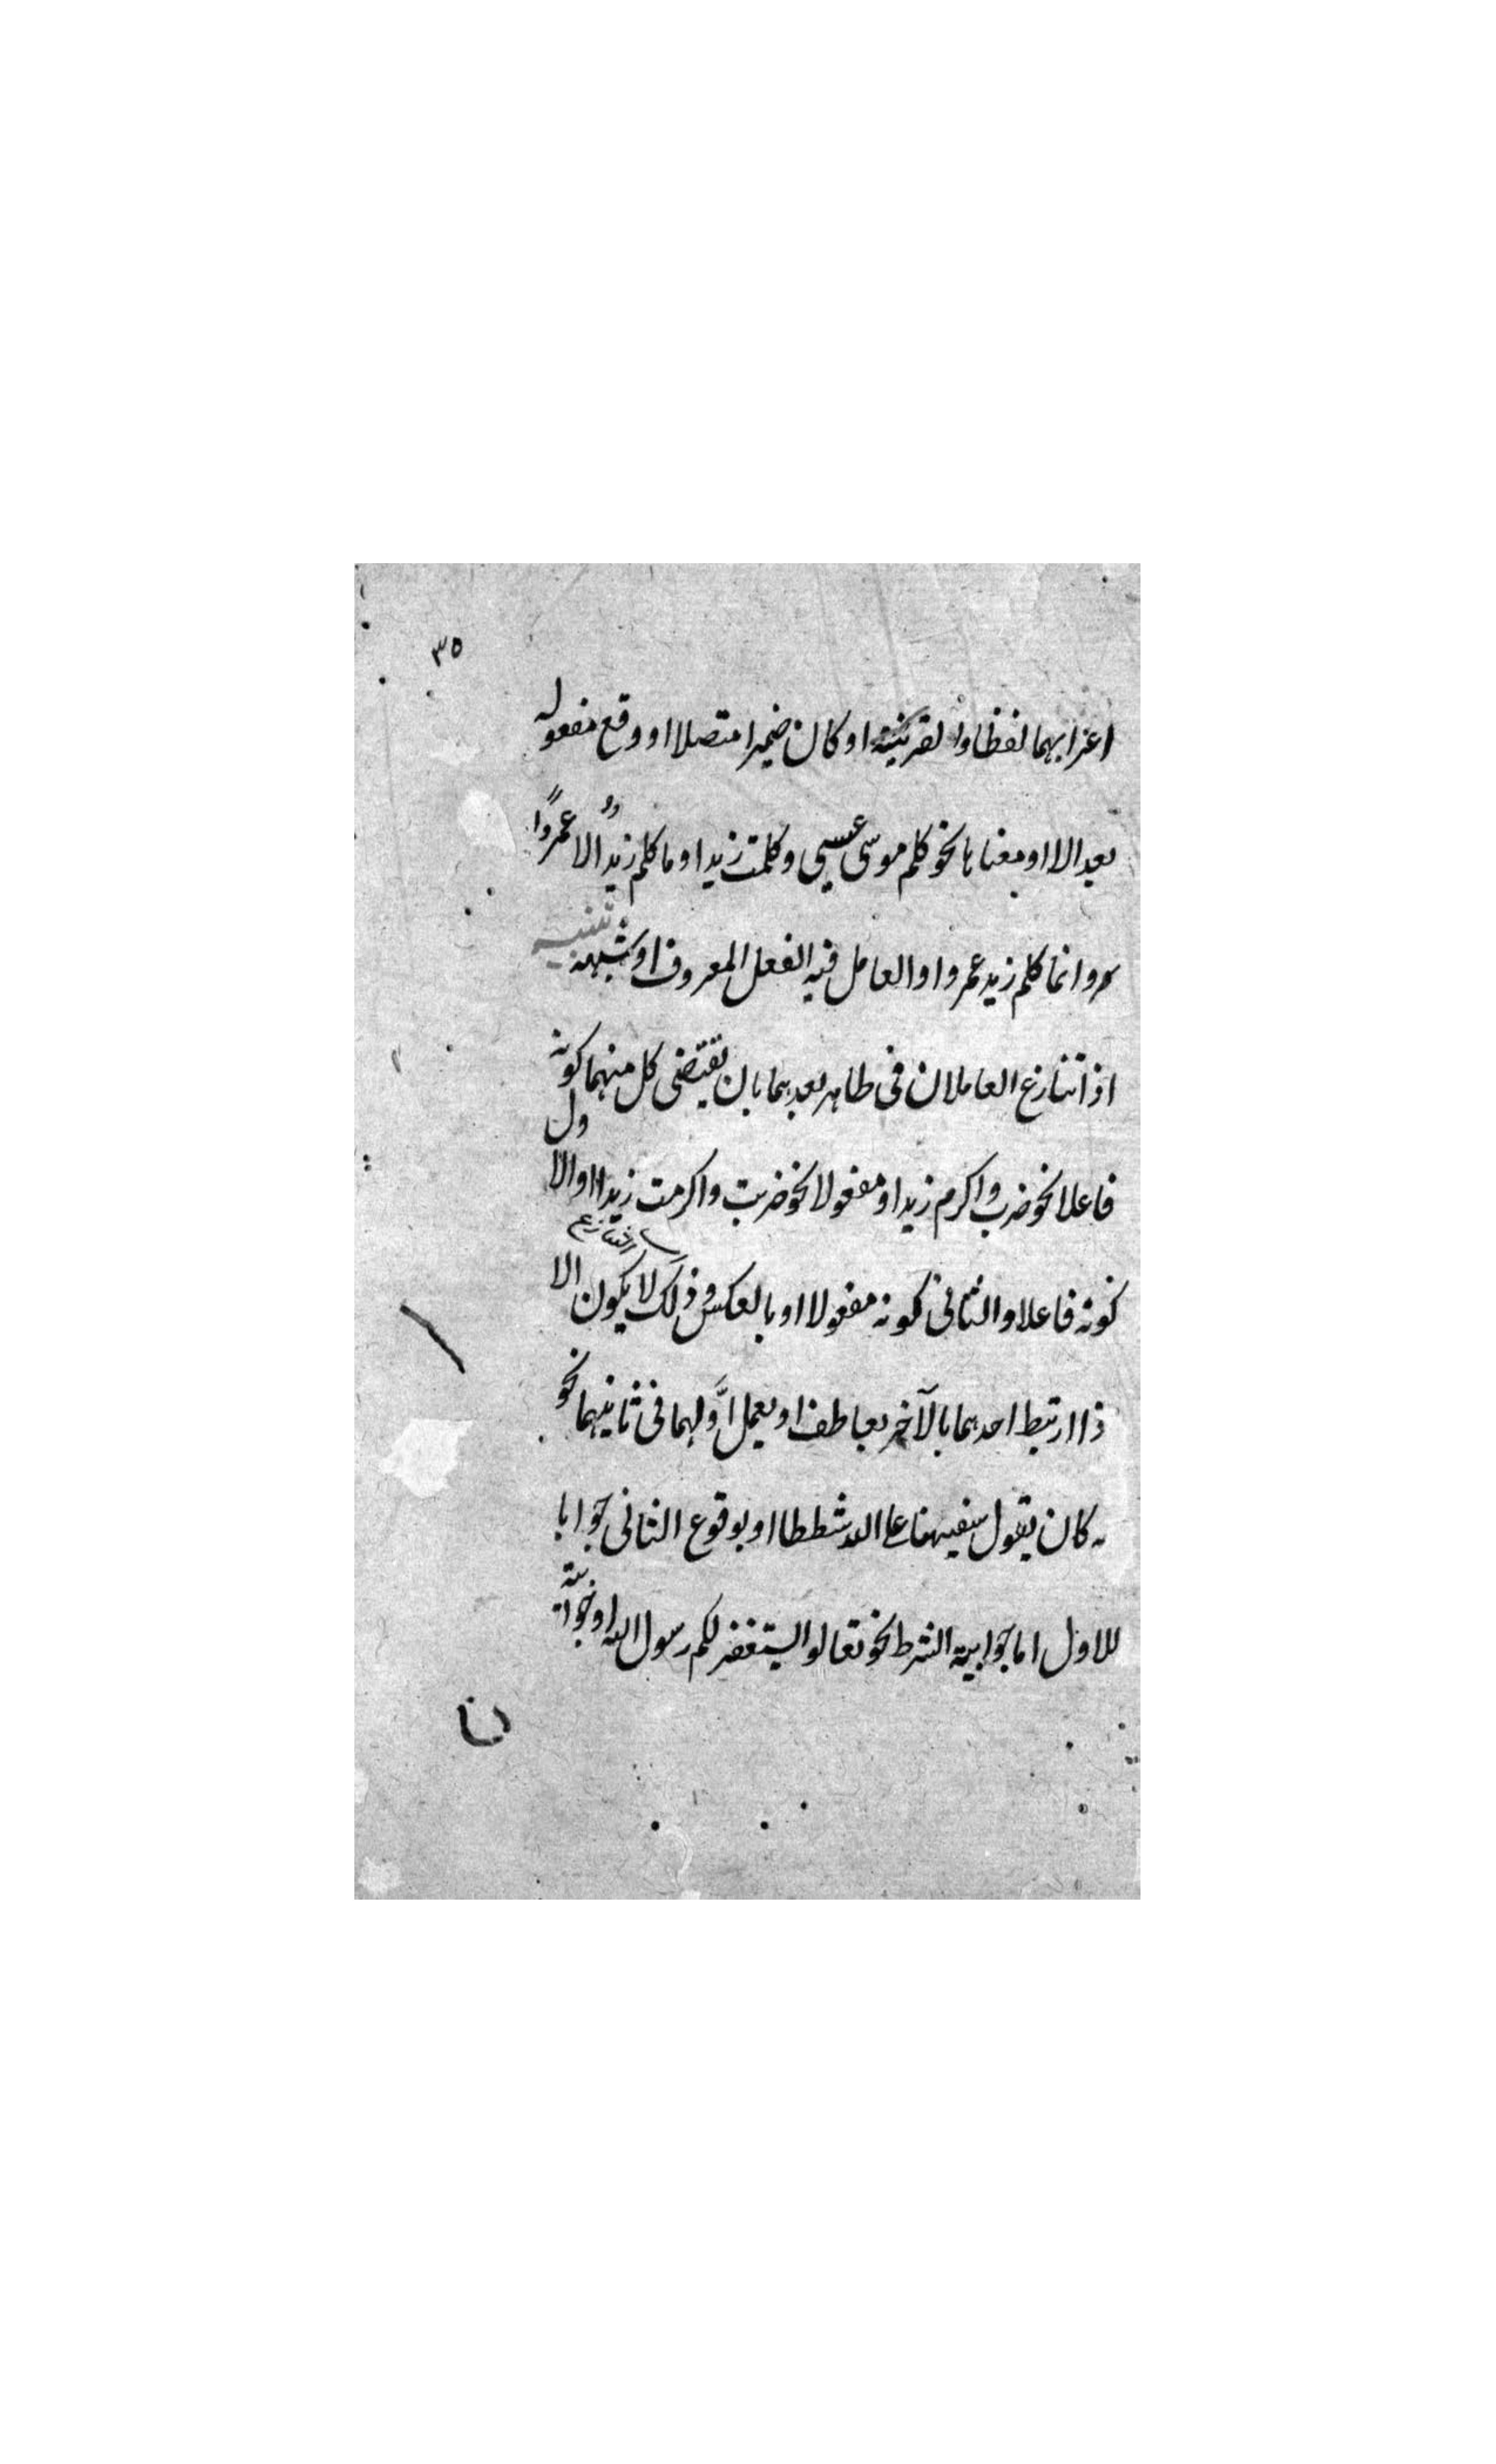 ٣٥
اعرابهما لفظا والقرينة او كان ضميرا متصلا او وقع مفعوله
بعد الا او معناها نحو كلم موسى عيسى وكلمت زيدا وما كلم زيدٌ الا عمروًا
وانما كلم زيد عمروا والعامل فيه الفعل المعروف او شبهه تنبيه
اذا تنازع العاملان فى ظاهر بعدهما بان يقتضى كل منهما كونه
فاعلا نحو ضرب واكرم زيد او مفعولا نحو ضربت واكرمت زيدا او الاول
كونه فاعلا والثانى كونه مفعولا او بالعكس وذلك لا يكون الا
التنازع
ذا ارتبط احدهما بالآخر بعاطف او بعمل اوّلهما فى ثانيهما نحو
كان يقول سفيهنا على الله شططا او بوقوع الثانى جوابا
للاول اما جوابية الشرط نحو تعالوا يستغفر لكم رسول الله او نحوآتية